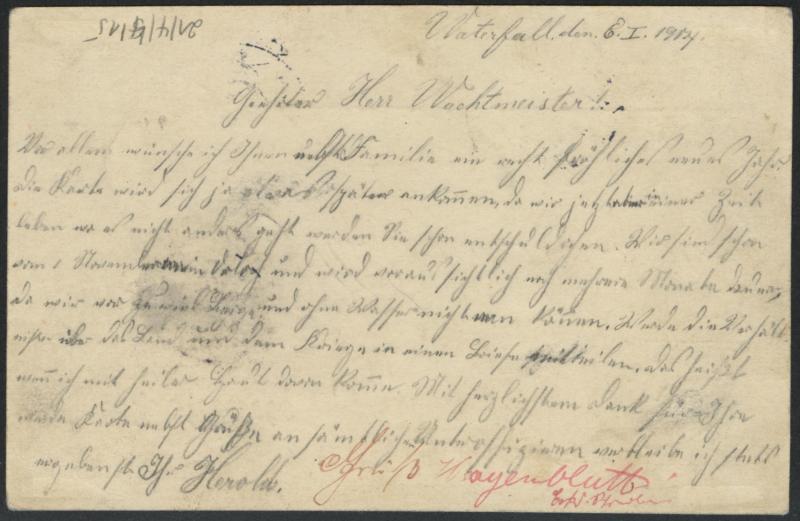 21/4/15
Waterfall, den 6. I. 1914.
Geehrter Herr Wachtmeister!
Vor allem wünsche ich Ihnen nebst Familie ein recht fröhliches neues Jahr.
Die Karte wird sich ja etwas später ankommen, da wir jetzt aber in einer Zeit
leben wo es nicht anders geht werden Sie schon entschuldigen. Wir sind schon
vom November in und wird voraussichtlich noch mehrere Monate dauern,
da wir vor zuviel und ohne Wasser nicht können. Werde die Verhält-
nisse über das Land und dem Kriege in einen Briefe mitteilen, das heißt
wenn ich mit heiler Haut davon komme. Mit herzlichstem Dank für Ihre
werte Karte nebst Grüße an sämtliche Unteroffizieren verbleibe ich stets
ergebenst Ihr Herold.
Gruß Hagenblutt